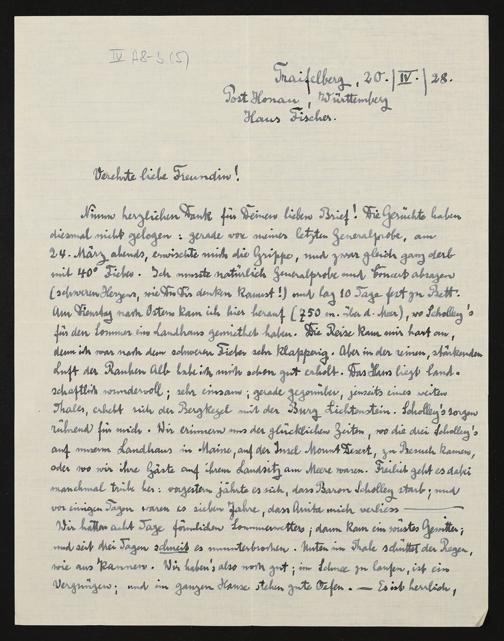 IV A8-3 (5)
Traifelberg, 20./IV./28.
Post Honau, Württemberg
Haus Fischer.
Verehrte liebe Freundin!
Nimm herzlichen Dank für Deinen lieben Brief! Die Gerüchte haben
diesmal nicht gelogen: gerade vor meiner letzten Generalprobe, am
24. März abends, erwischte mich die Grippe, und zwar gleich ganz derb
mit 40° Fieber. Ich musste natürlich Generalprobe und Concert absagen
(schweren Herzens, wie Du Dir denken kannst!) und lag 10 Tage fest zu Bett.
Am Dienstag nach Ostern kam ich hier herauf (750 m. über d. Meer), wo Scholley's
für den Sommer ein Landhaus gemiethet haben. Die Reise kam mir hart an,
denn ich war nach dem schweren Fieber sehr klapperig. Aber in der reinen, stärkenden
Luft der Rauhen Alb habe ich mich schon gut erholt. Das Haus liegt land-
schaftlich wundervoll; sehr einsam; gerade gegenüber, jenseits eines weiten
Thales, erhebt sich der Bergkegel mit der Burg Lichtenstein. Scholley's sorgen
rührend für mich. Wir erinnern uns der glücklichen Zeiten, wo die drei Scholley's
auf unserm Landhaus in Maine, auf der Insel Mount Desert, zu Besuch kamen,
oder wo wir ihre Gäste auf ihrem Landsitz am Meere waren. Freilich geht es dabei
manchmal trüb her: vorgestern jährte es sich, dass Baron Scholley starb; und
vor einigen Tagen waren es sieben Jahre, dass Anita mich verliess ———
Wir hatten acht Tage förmlichen Sommerwetters; dann kam ein wüstes Gewitter;
und seit drei Tagen schneit es ununterbrochen. Unten im Thale schüttet der Regen,
wie aus Kannen. Wir haben's also noch gut; im Schnee zu laufen, ist ein
Vergnügen; und im ganzen Hause stehen gute Oefen. — Es ist herrlich,